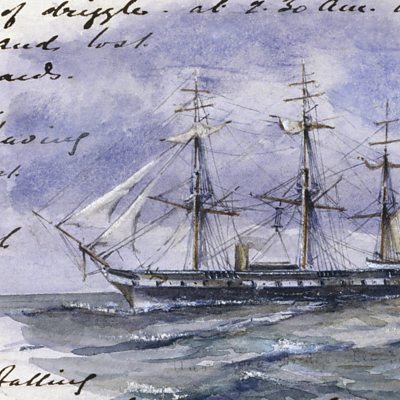 of drizzle. at 2.30 Am.
and lost
ards.
having
falling